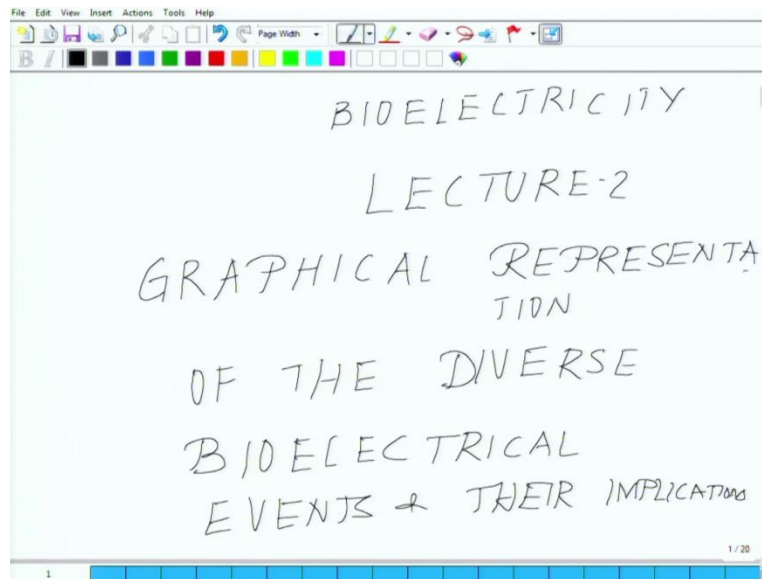 File Edit View Insert Actions Tools Help
Page Width
B I
BIOELECTRICITY
LECTURE-2
GRAPHICAL REPRESENTA
TION
OF THE DIVERSE
BIOELECTRICAL
EVENTS & THEIR IMPLICATIONS
1 / 20
1